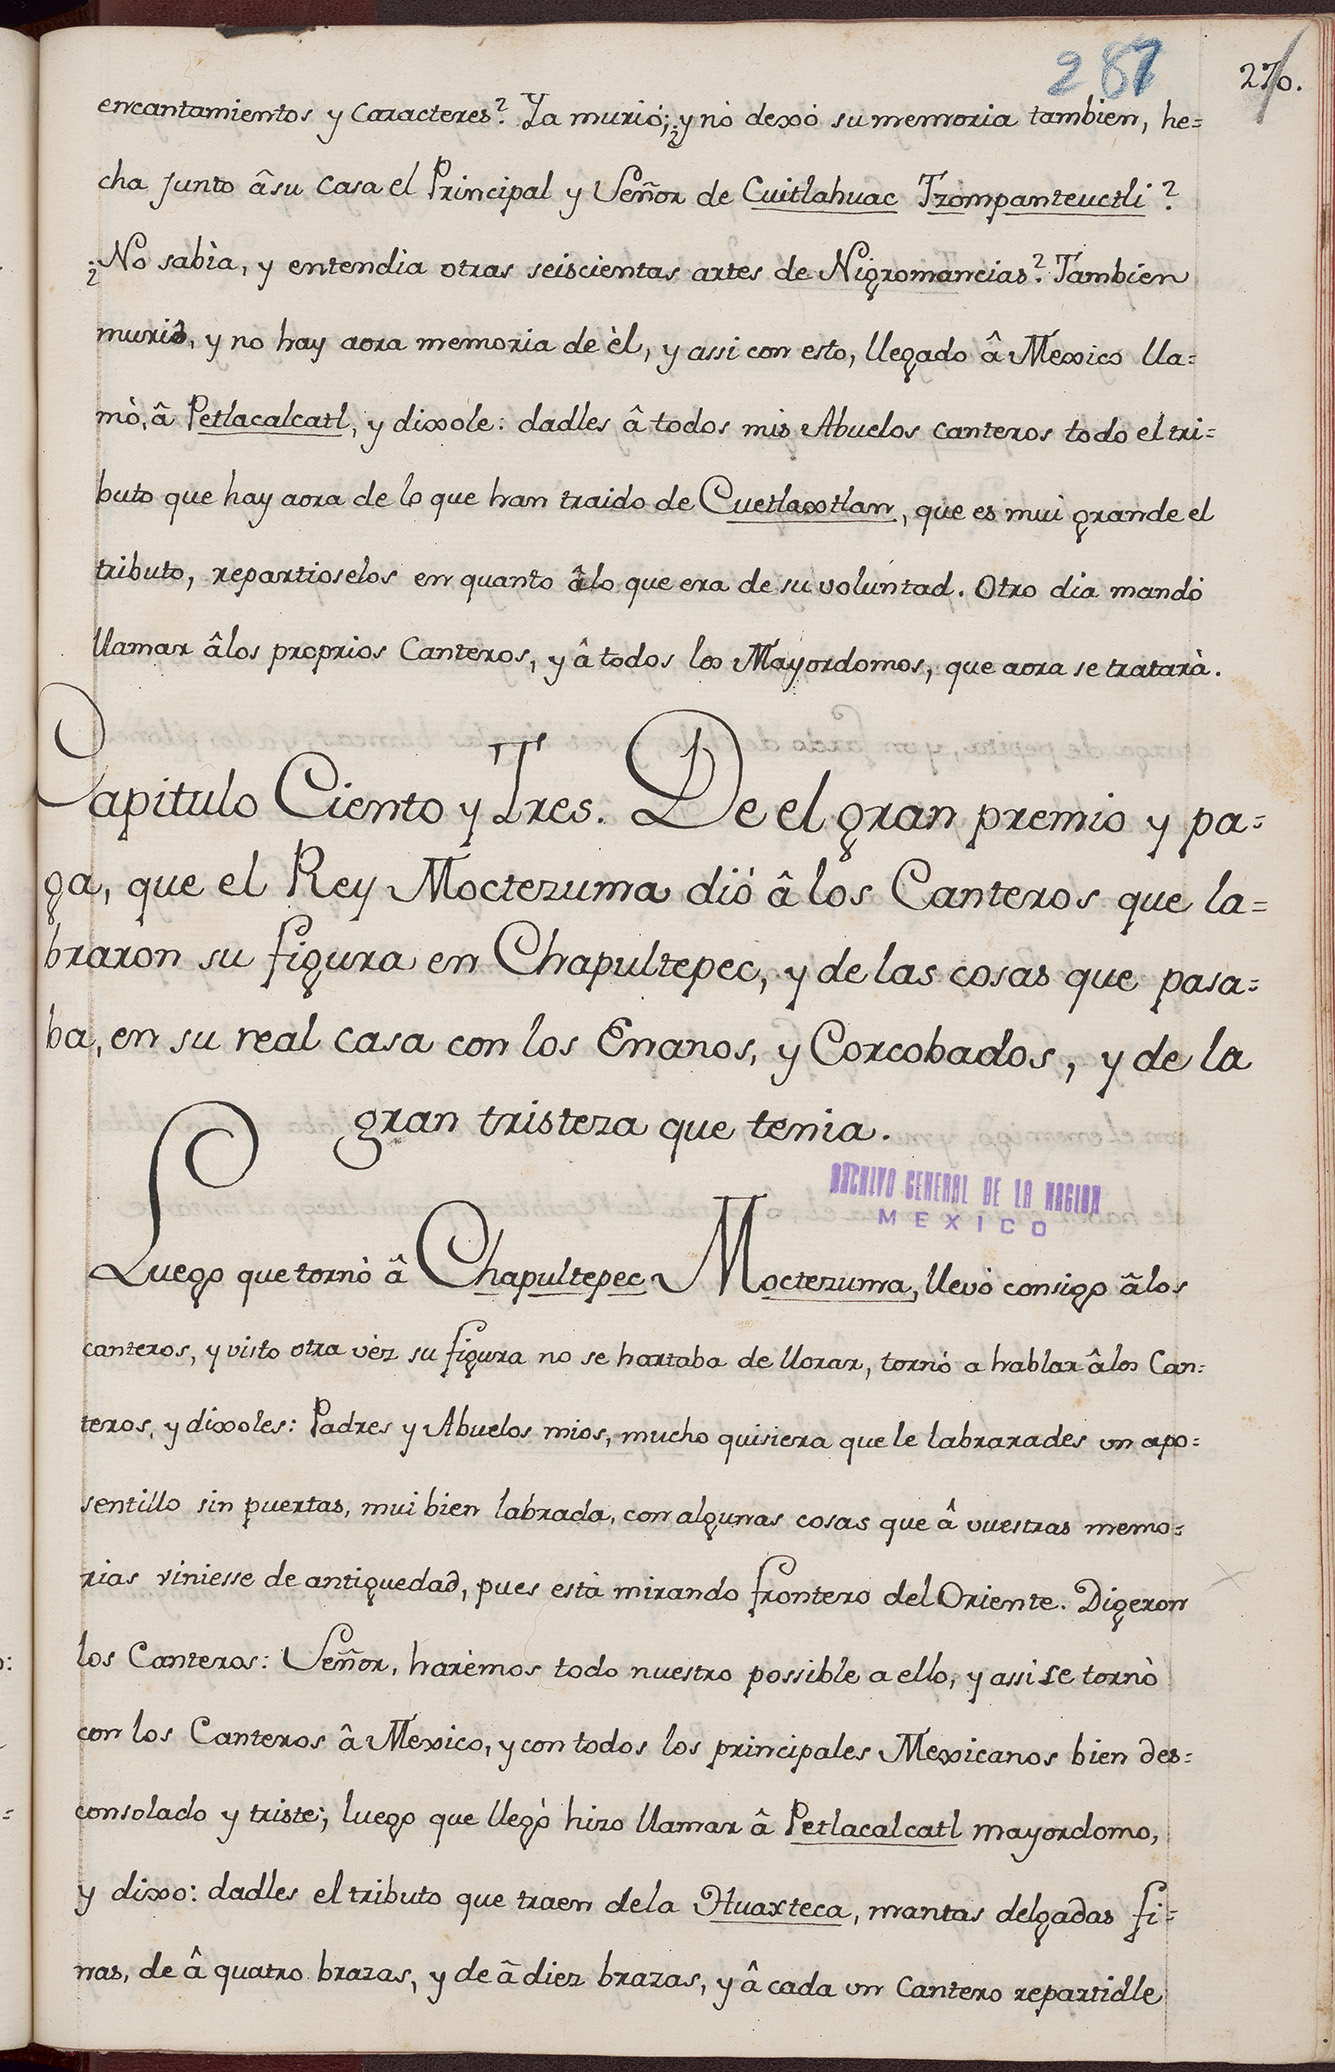 287
270.
encantamientos y caracteres? Ya murió; ¿y nò dexò su memoria tambien, he=
cha junto â su casa el Principal y Señor de Cuitlahuac Tzompanteuctli?
¿No sabìa, y entendia otras seiscientas artes de Nigromancias? Tambien
muriò, y no hay aora memoria de èl, y assi con esto, llegado â Mexico lla=
mò, â Petlacalcatl, y dixole: dadles â todos mis Abuelos canteros todo el tri=
buto que hay aora de lo que han traido de Cuetlaxtlan, que es mui grande el
tributo, repartioselos en quanto âlo que era de su voluntad. Otro dia mandò
llamar âlos proprios Canteros, y â todos los Mayordomos, que aora se tratarà.
Capitulo Ciento y Tres. De el gran premio y pa=
ga, que el Rey Moctezuma dió â los Canteros que la=
braron su figura en Chapultepec, y de las cosas que pasa=
ba, en su real casa con los Enanos, y Corcobados, y de la
gran tristeza que tenia.
ARCHIVO GENERAL DE LA NACION
MEXICO
Luego que tornò â Chapultepec Moctezuma, llevò consigo âlos
canteros, y visto otra vèz su figura no se hartaba de llorar, tornò a hablar âlos Can=
teros, y dixoles: Padres y Abuelos mios, mucho quisiera que le labrarades un apo=
sentillo sin puertas, mui bien labrada, con algunas cosas que â vuestras memo=
rias viniesse de antiguedad, pues està mirando frontero del Oriente. Digeron
los Canteros: Señor, harèmos todo nuestro possible a ello, y assi se tornò
con los Canteros â Mexico, y con todos los principales Mexicanos bien des=
consolado y triste; luego que llegò hizo llamar â Petlacalcatl mayordomo,
y dixo: dadles el tributo que traen dela Huaxteca, mantas delgadas fi=
nas, de â quatro brazas, y de â diez brazas, y â cada un Cantero repartidle